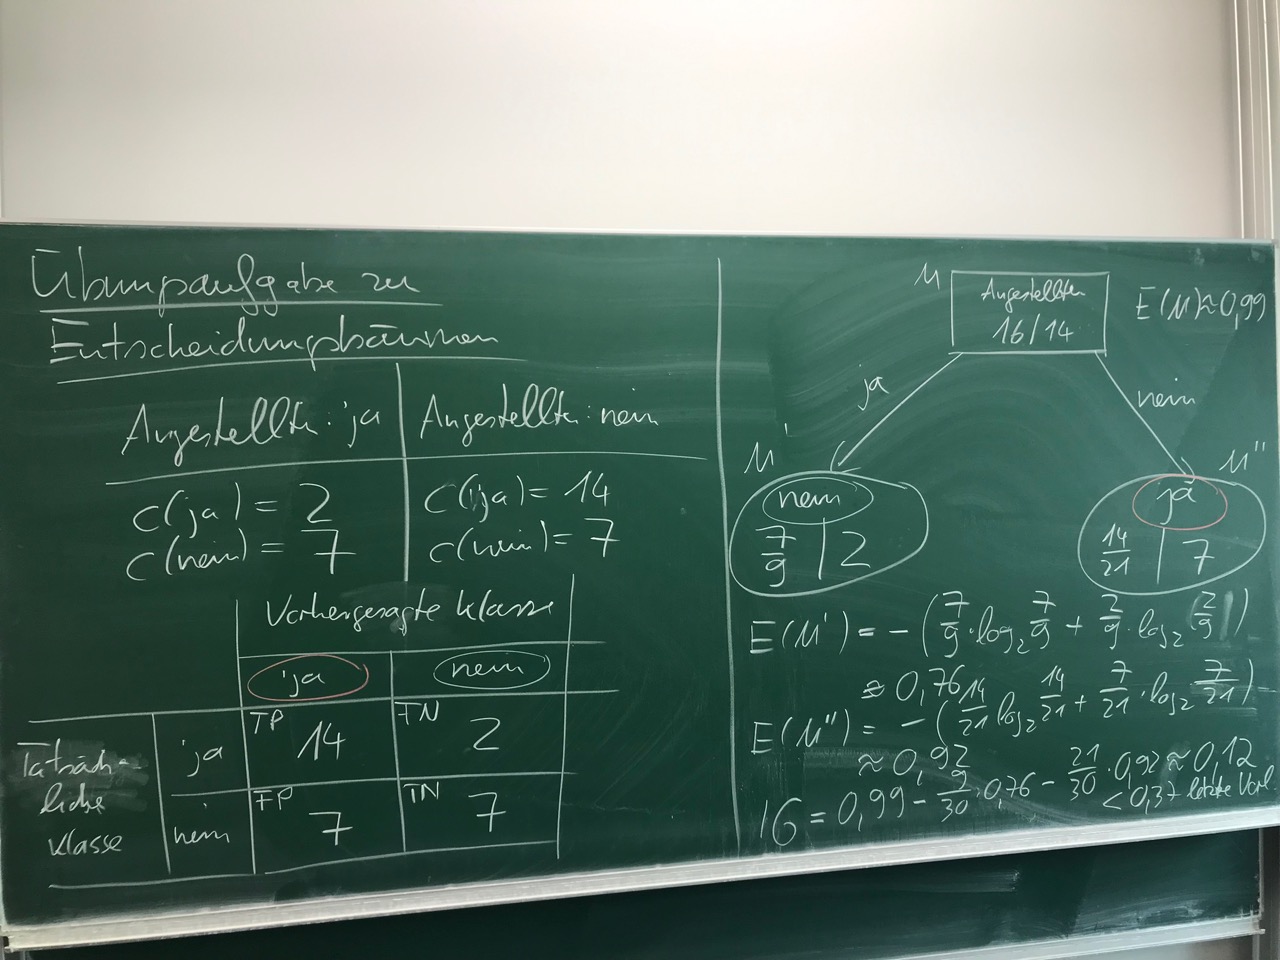 Übungsaufgabe zu
Entscheidungsbäumen
Angestellter: ja | Angestellter: nein
C(ja) = 2
C(nein) = 7
C(ja) = 14
C(nein) = 7
Vorhergesagte Klasse
ja nein
Tatsäch-
liche
Klasse
ja TP 14 FN 2
nein FP 7 TN 7
M Angestellter
16/14
E(M) ≈ 0,99
ja nein
M' M''
nein
7/9 | 2
ja
14/21 | 7
E(M') = -(7/9 · log₂ 7/9 + 2/9 · log₂ 2/9)
≈ 0,76
E(M'') = -(14/21 log₂ 14/21 + 7/21 · log₂ 7/21)
≈ 0,92
IG = 0,99 - 9/30 · 0,76 - 21/30 · 0,92 ≈ 0,12
< 0,37 letzte Vorl.